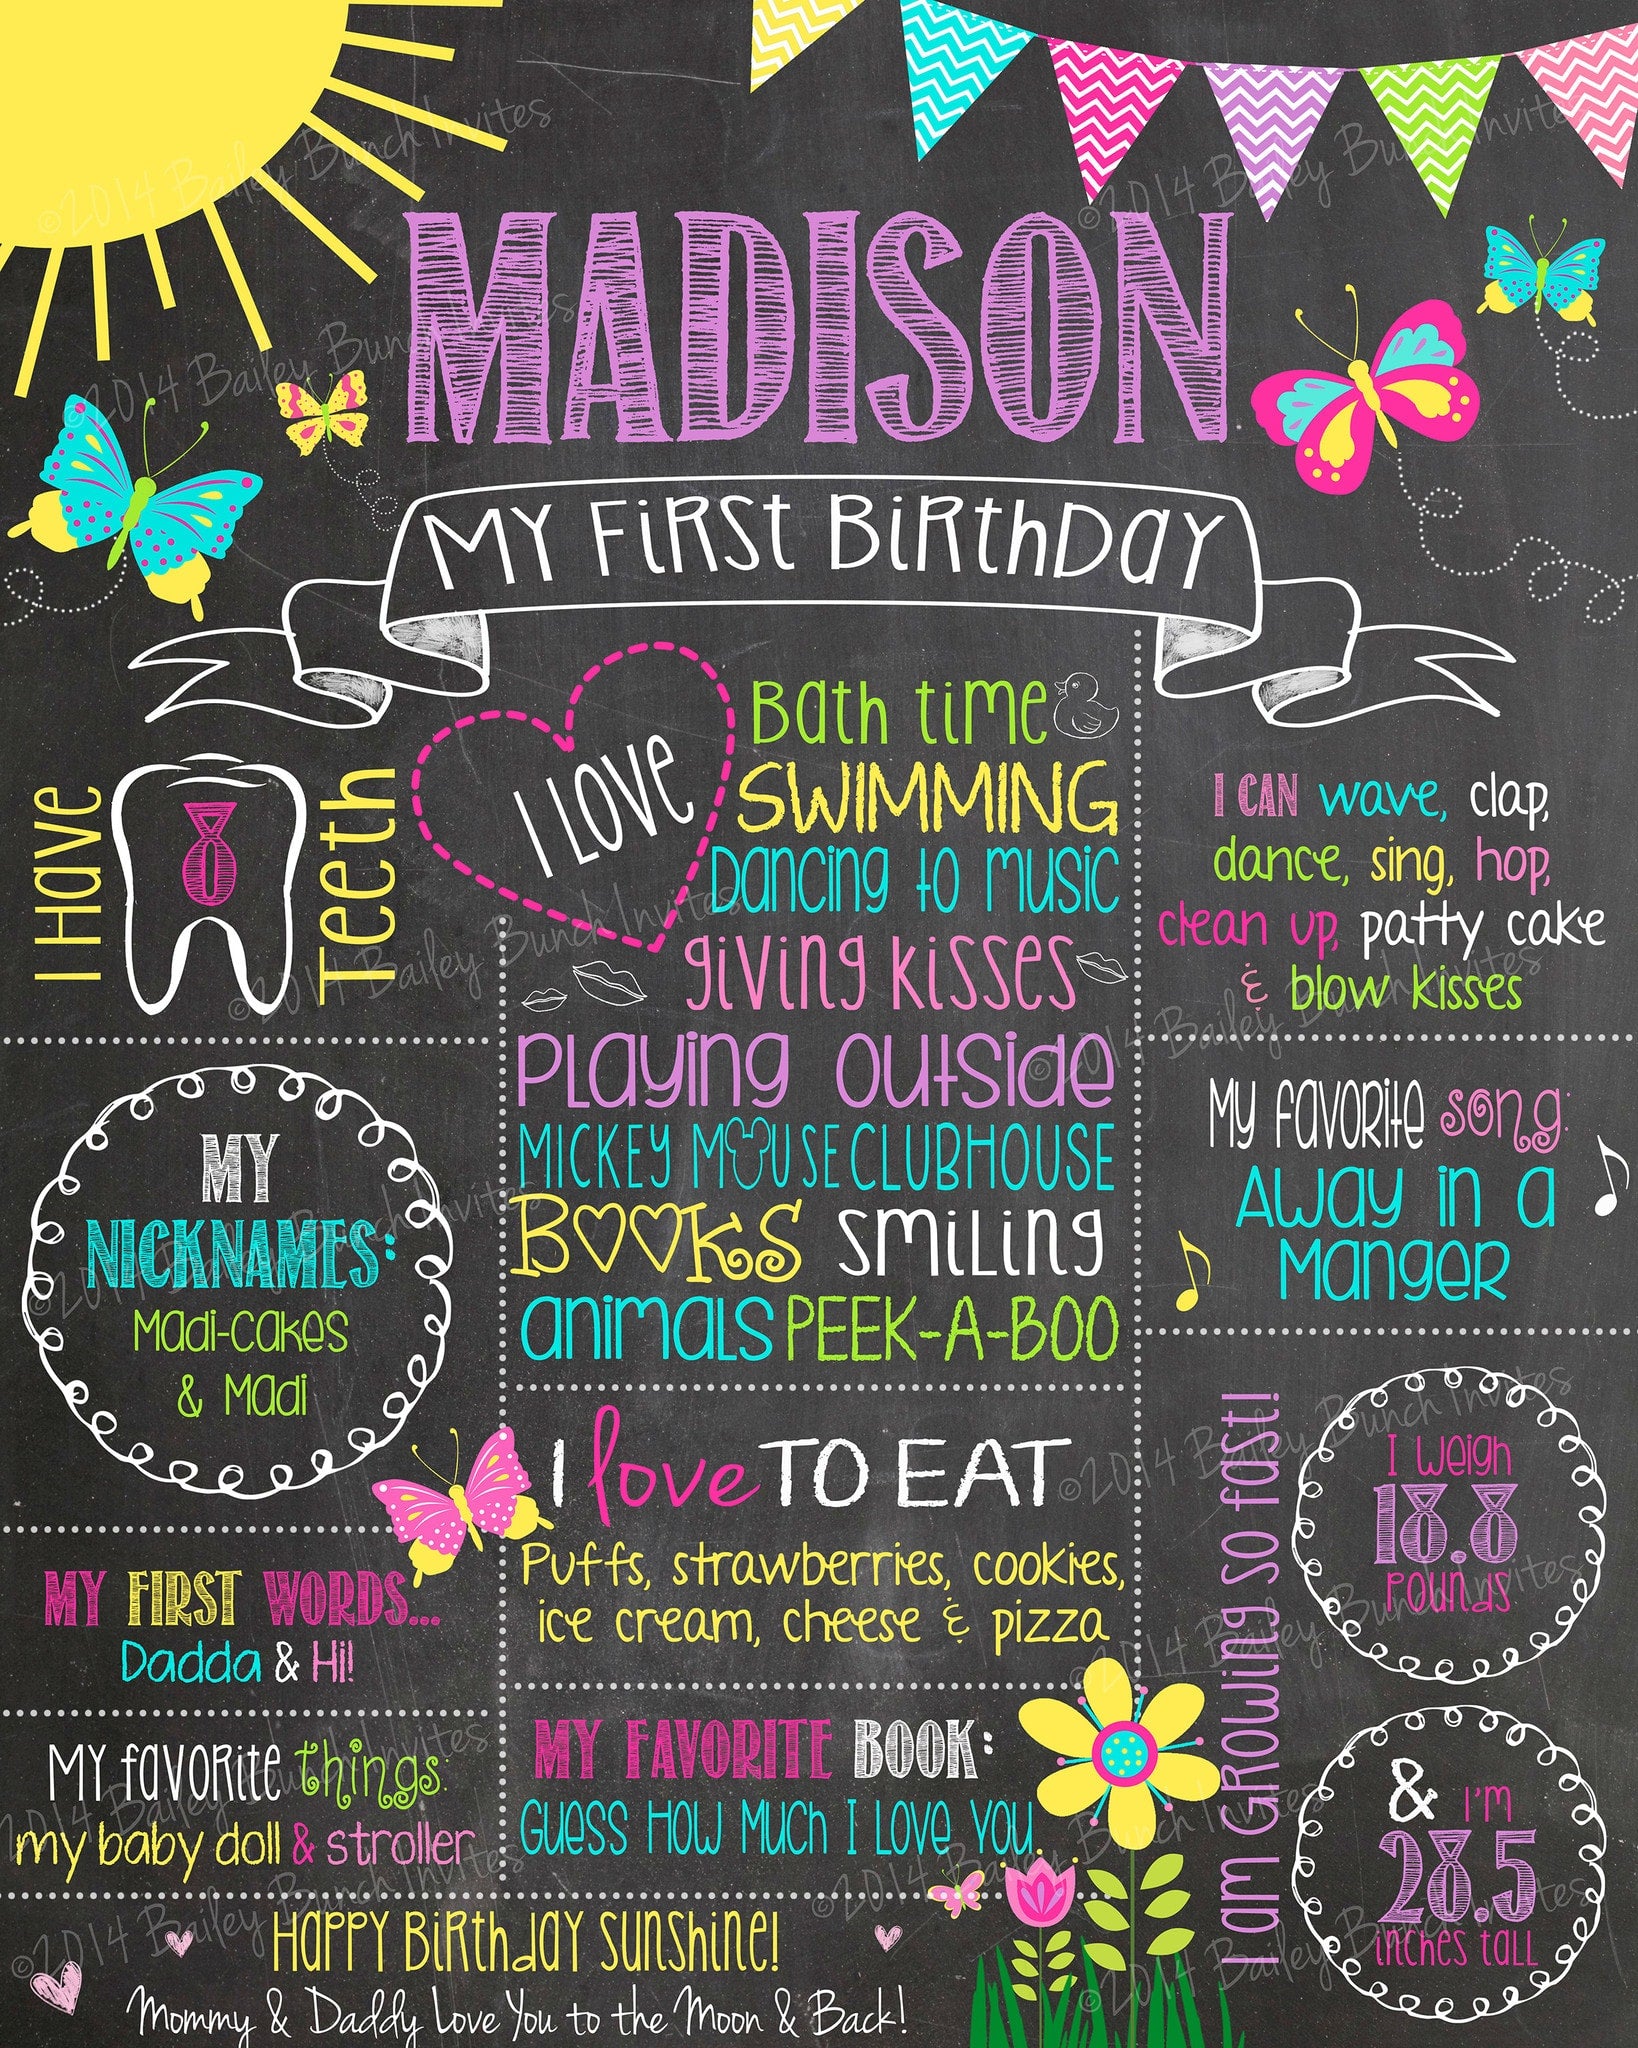 MADISON
MY FiRST BiRthDaY
I Have 8 Teeth
I LOVE
Bath time
SWIMMING
Dancing to music
giving kisses
Playing outside
MICKEY MOUSE CLUBHOUSE
BOOKS smiling
animals PEEK-A-BOO
I CAN wave, clap,
dance, sing, hop,
clean up, patty cake
& blow kisses
MY NICKNAMES:
Madi-cakes
& Madi
My favorite song:
Away in a
Manger
I love TO EAT
Puffs, strawberries, cookies,
ice cream, cheese & pizza
MY FIRST WORDS...
Dadda & Hi!
I am Growing so fast!
I weigh
18.8
pounds
& I'm
28.5
inches tall
My favorite things:
my baby doll & stroller
MY FAVORITE BOOK:
Guess How Much I Love You
Happy Birthday Sunshine!
Mommy & Daddy Love You to the Moon & Back!
©2014 Bailey Bunch Invites